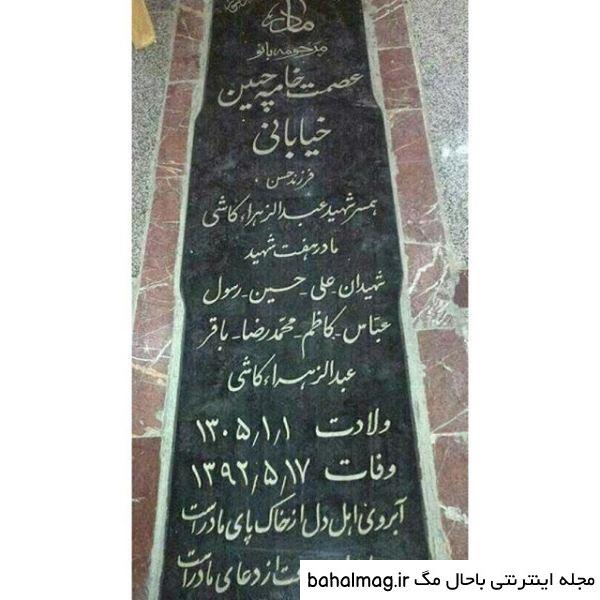 مادر
مرحومه بانو
عصمت خامه چین
خیابانی
فرزند حسن
همسر شهید عبدالزهراء کاشی
مادر هفت شهید
شهیدان علی - حسین - رسول
عباس - کاظم - محمدرضا - باقر
عبدالزهراء کاشی
ولادت ۱۳۰۵/۱/۱
وفات ۱۳۹۲/۵/۱۷
آبروی اهل دل از خاک پای مادر است
از دعای مادر است
مجله اینترنتی باحال مگ bahalmag.ir